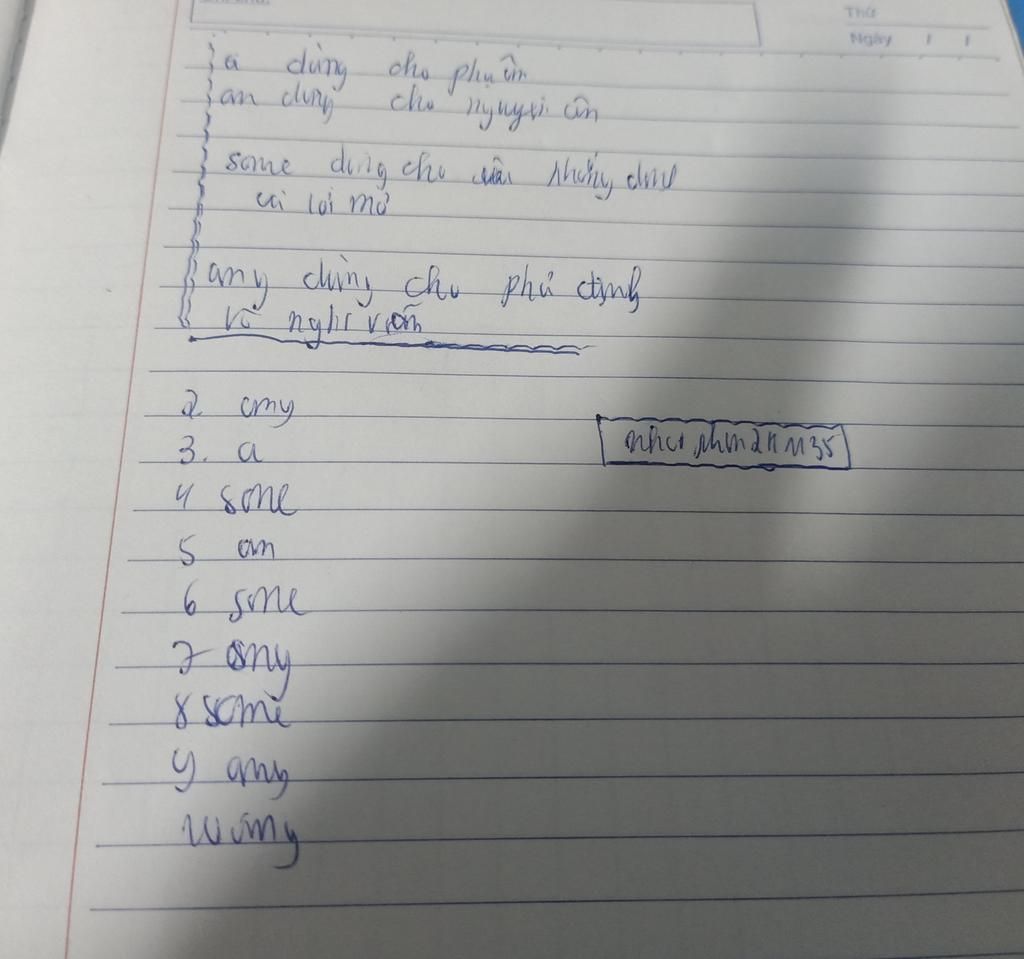 Thứ
Ngày / /
a dùng cho phụ âm
an dùng cho nguyên âm
some dùng cho câu khẳng định
và lời mờ
any dùng cho phủ định
và nghi vấn
2 any
3. a
4 some
5 an
6 some
7 any
8 some
9 any
10 any